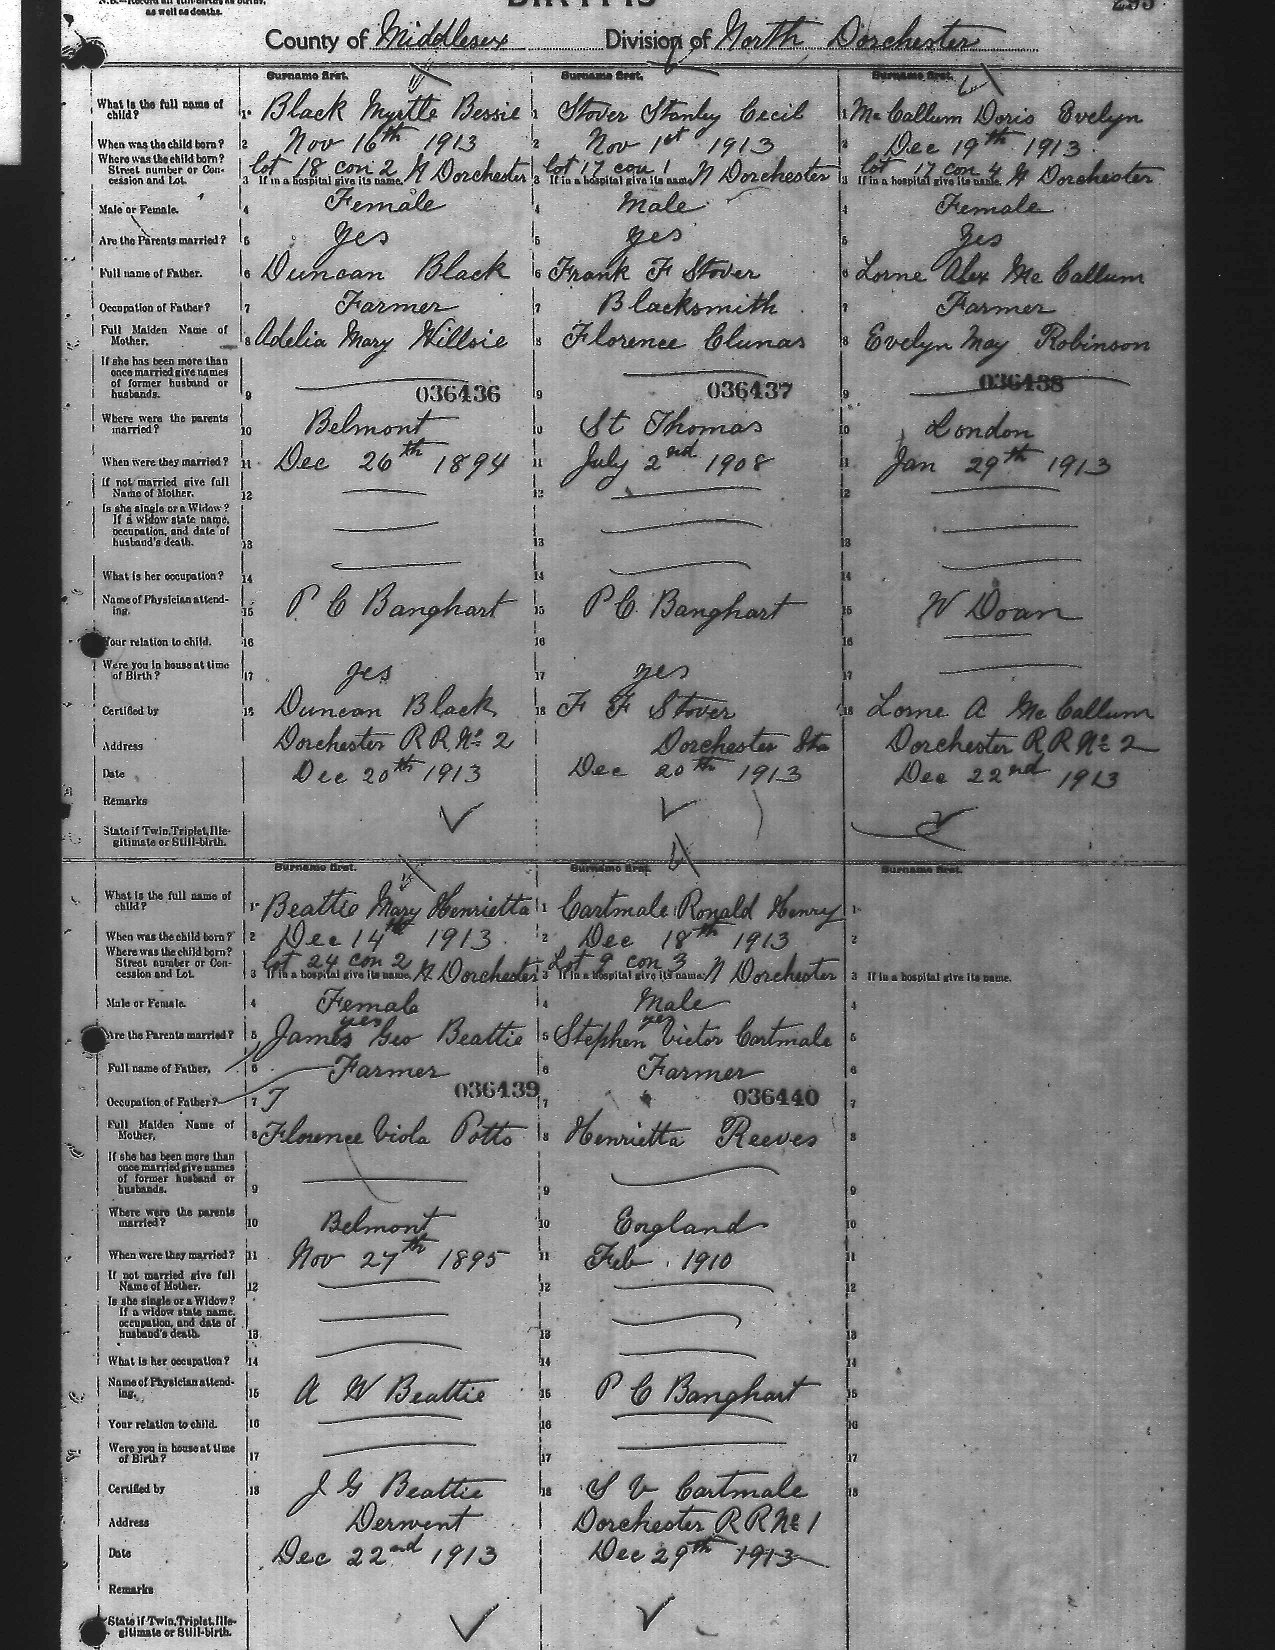 as well as deaths.
BIRTHS
295
County of Middlesex Division of North Dorchester
Surname first. Surname first. Surname first.
What is the full name of child? 1 Black Myrtle Bessie 1 Stover Stanley Cecil 1 McCallum Doris Evelyn
When was the child born? 2 Nov 16th 1913 2 Nov 1st 1913 2 Dec 19th 1913
Where was the child born? Street number or Concession and Lot. 3 If in a hospital give its name. lot 18 con 2 N Dorchester 3 If in a hospital give its name. lot 17 con 1 N Dorchester 3 If in a hospital give its name. lot 17 con 4 N Dorchester
Male or Female. 4 Female 4 Male 4 Female
Are the Parents married? 5 yes 5 yes 5 yes
Full name of Father. 6 Duncan Black 6 Frank F Stover 6 Lorne Alex McCallum
Occupation of Father? 7 Farmer 7 Blacksmith 7 Farmer
Full Maiden Name of Mother. 8 Adelia Mary Willsie 8 Florence Clunas 8 Evelyn May Robinson
If she has been more than once married give names of former husband or husbands. 9 036436 9 036437 9 036438
Where were the parents married? 10 Belmont 10 St Thomas 10 London
When were they married? 11 Dec 26th 1894 11 July 2nd 1908 11 Jan 29th 1913
If not married give full Name of Mother. 12 12 12
Is she single or a Widow? If a widow state name, occupation, and date of husband's death. 13 13 13
What is her occupation? 14 14 14
Name of Physician attending. 15 P C Banghart 15 P C Banghart 15 W Doan
Your relation to child. 16 16 16
Were you in house at time of Birth? 17 yes 17 yes 17
Certified by 18 Duncan Black 18 F F Stover 18 Lorne A McCallum
Address Dorchester R R No 2 Dorchester Sta Dorchester R R No 2
Date Dec 20th 1913 Dec 20th 1913 Dec 22nd 1913
Remarks
State if Twin, Triplet, Illegitimate or Still-birth.
Surname first. Surname first. Surname first.
What is the full name of child? 1 Beattie Mary Henrietta 1 Cartmale Ronald Henry 1
When was the child born? 2 Dec 14th 1913 2 Dec 18th 1913 2
Where was the child born? Street number or Concession and Lot. 3 If in a hospital give its name. lot 24 con 2 N Dorchester 3 If in a hospital give its name. Lot 9 con 3 N Dorchester 3 If in a hospital give its name.
Male or Female. 4 Female 4 Male 4
yes yes
Are the Parents married? 5 James Geo Beattie 5 Stephen Victor Cartmale 5
Full name of Father. 6 Farmer 6 Farmer 6
Occupation of Father? 7 036439 7 036440 7
Full Maiden Name of Mother. 8 Florence Viola Potts 8 Henrietta Reeves 8
If she has been more than once married give names of former husband or husbands. 9 9 9
Where were the parents married? 10 Belmont 10 England 10
When were they married? 11 Nov 27th 1895 11 Feb 1910 11
If not married give full Name of Mother. 12 12 12
Is she single or a Widow? If a widow state name, occupation, and date of husband's death. 13 13 13
What is her occupation? 14 14 14
Name of Physician attending. 15 A W Beattie 15 P C Banghart 15
Your relation to child. 16 16 16
Were you in house at time of Birth? 17 17 17
Certified by 18 J G Beattie 18 S V Cartmale 18
Address Derwent Dorchester R R No 1
Date Dec 22nd 1913 Dec 29th 1913
Remarks
State if Twin, Triplet, Illegitimate or Still-birth.